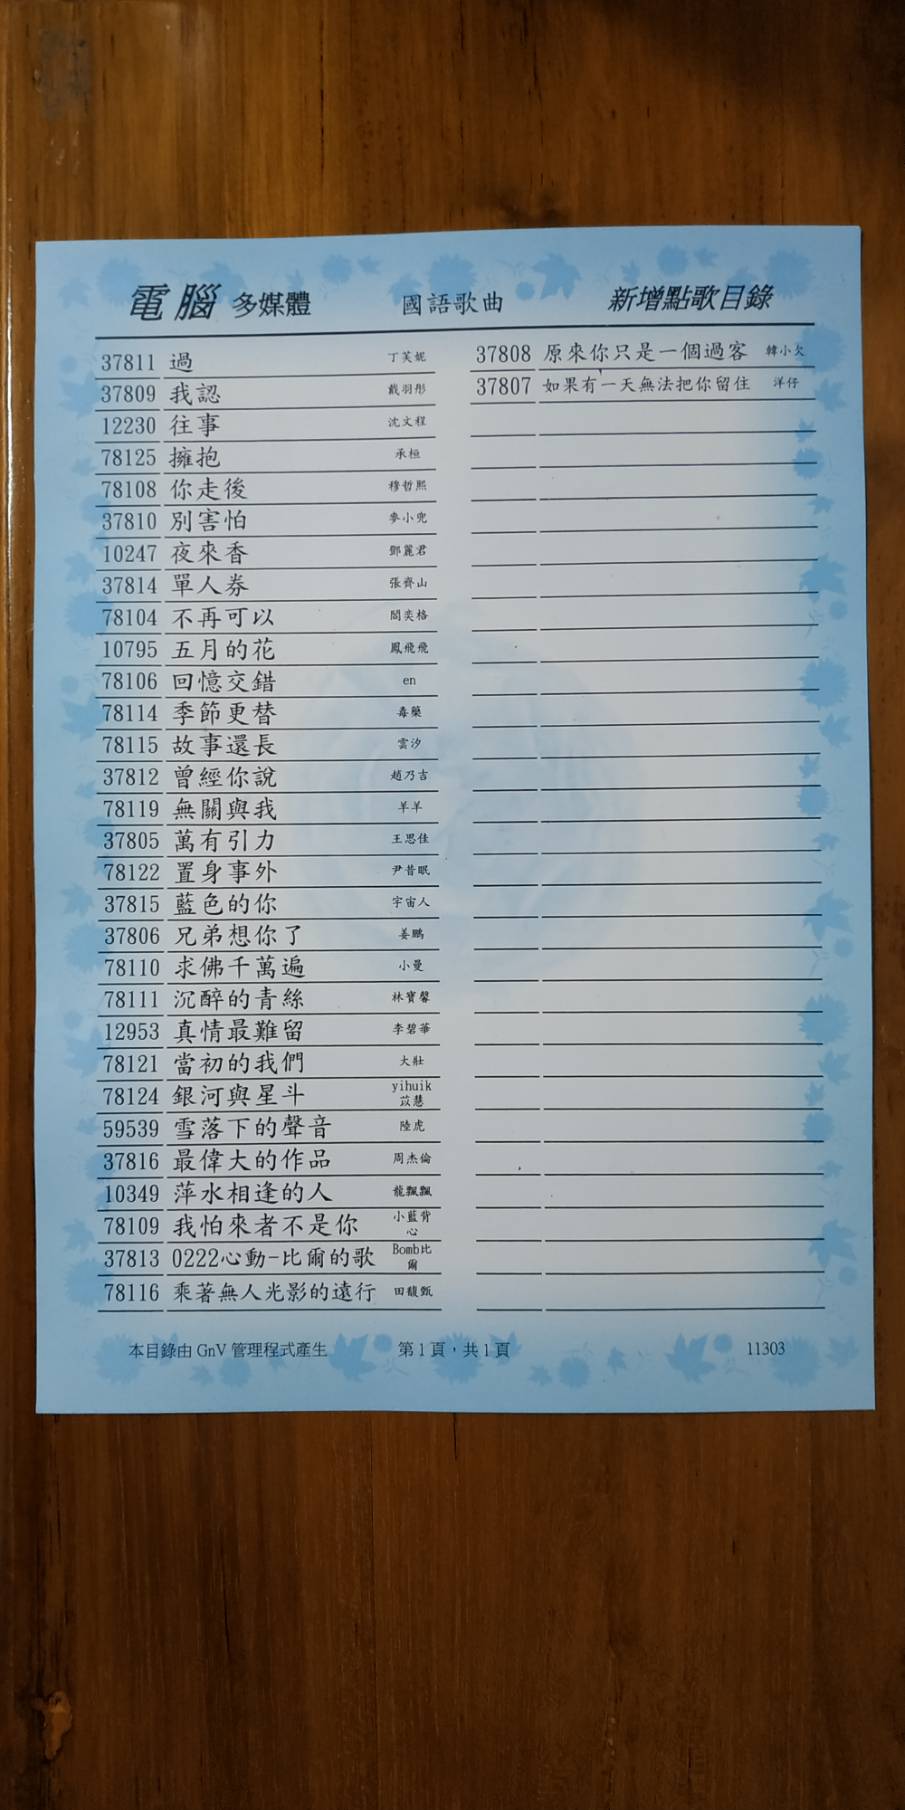 電腦 多媒體 國語歌曲 新增點歌目錄
37811 過 丁芙妮
37809 我認 戴羽彤
12230 往事 沈文程
78125 擁抱 承桓
78108 你走後 穆哲熙
37810 別害怕 麥小兜
10247 夜來香 鄧麗君
37814 單人券 張齊山
78104 不再可以 閻奕格
10795 五月的花 鳳飛飛
78106 回憶交錯 en
78114 季節更替 毒藥
78115 故事還長 雲汐
37812 曾經你說 趙乃吉
78119 無關與我 羊羊
37805 萬有引力 王思佳
78122 置身事外 尹昔眠
37815 藍色的你 宇宙人
37806 兄弟想你了 姜鵬
78110 求佛千萬遍 小曼
78111 沉醉的青絲 林寶馨
12953 真情最難留 李碧華
78121 當初的我們 大壯
78124 銀河與星斗 yihuik
苡慧
59539 雪落下的聲音 陸虎
37816 最偉大的作品 周杰倫
10349 萍水相逢的人 龍飄飄
78109 我怕來者不是你 小藍背
心
37813 0222心動-比爾的歌 Bomb比
爾
78116 乘著無人光影的遠行 田馥甄
37808 原來你只是一個過客 韓小欠
37807 如果有一天無法把你留住 洋仔
本目錄由 GnV 管理程式產生 第1頁，共1頁 11303